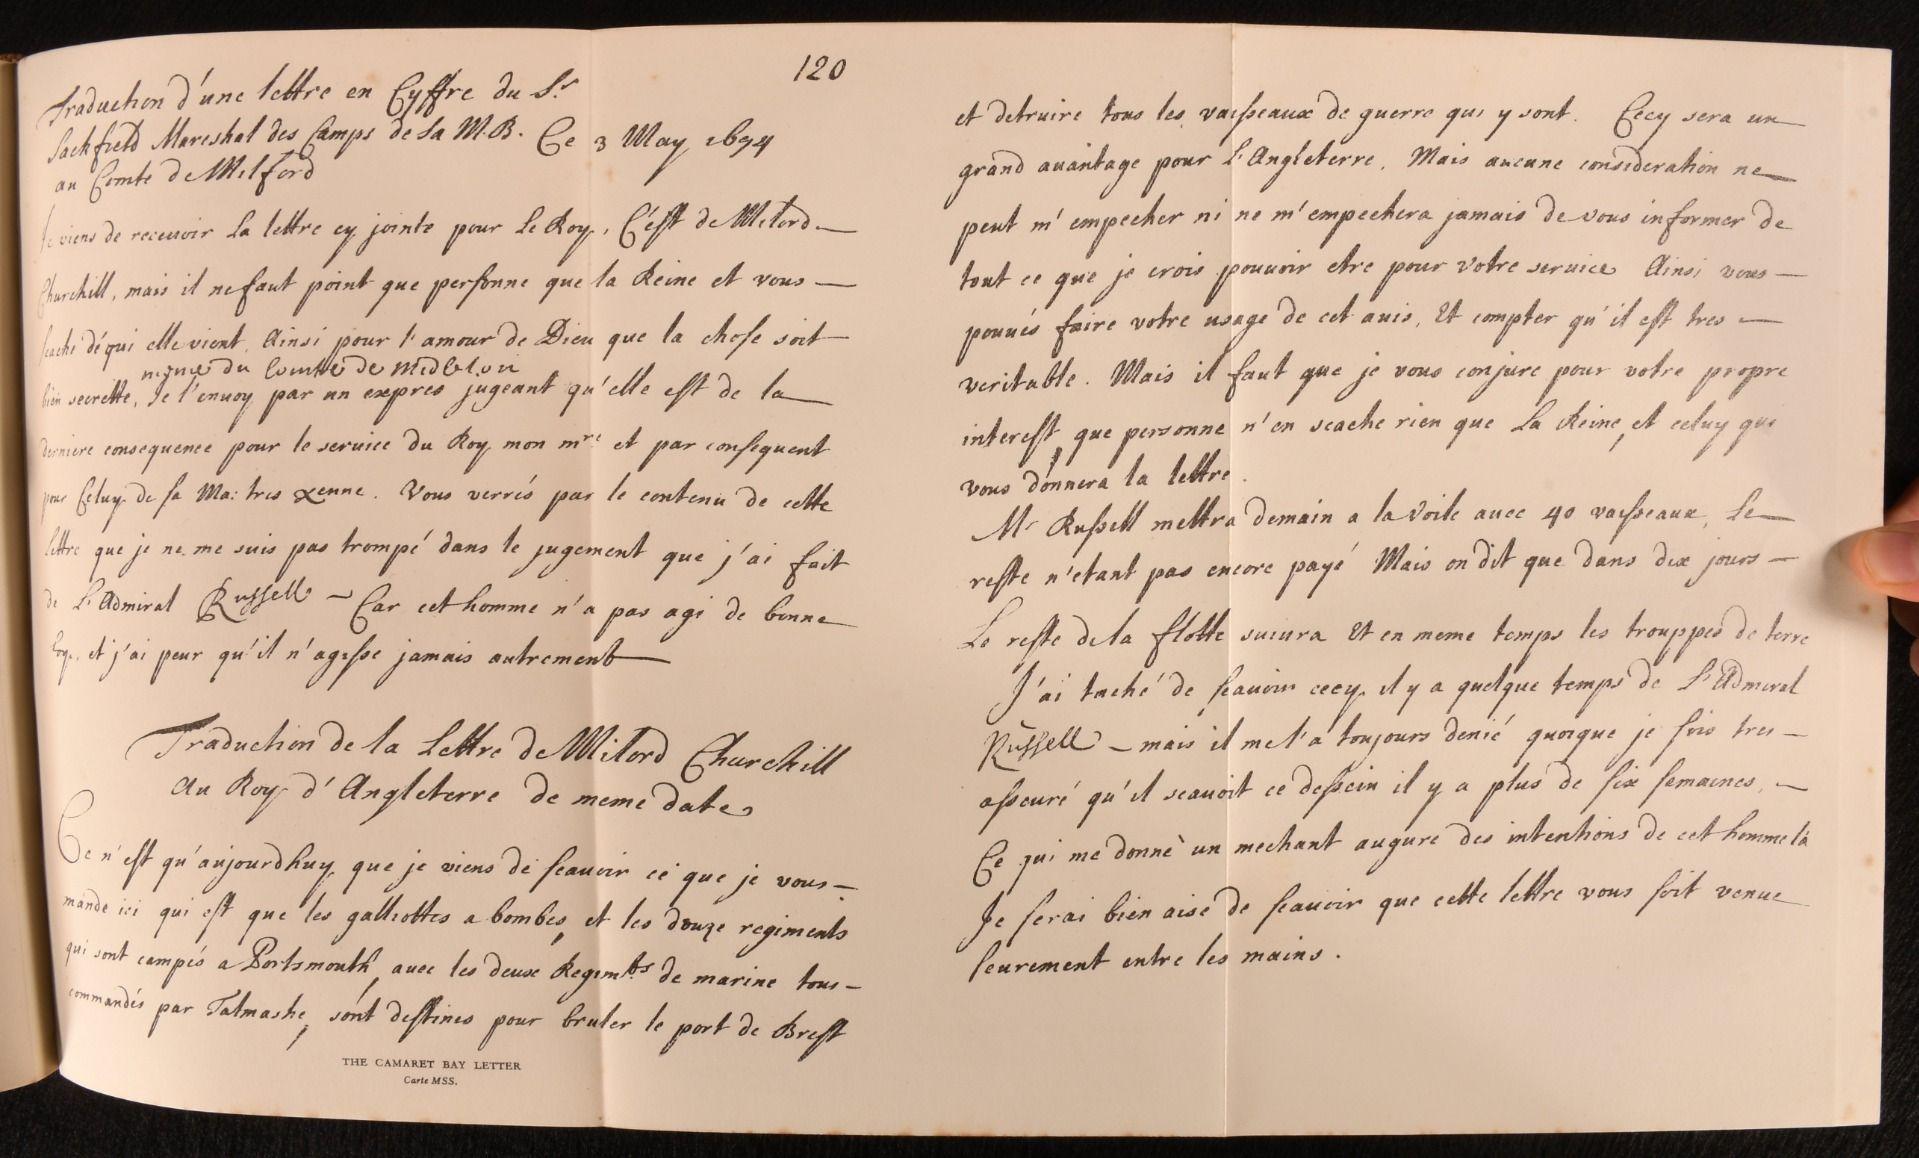 120
Traduction d'une lettre en Cyffre du Sr
Sackfield Mareshal des Camps de sa M.B. Ce 3 May 1694
au Comte de Melford
Je viens de recevoir la lettre cy jointe pour le Roy, C'est de Milord
Churchill, mais il ne faut point que personne que la Reine et vous
scache de qui elle vient. Ainsi pour l'amour de Dieu que la chose soit
mesme du Comte de Midleton
bien secrette, Je l'envoy par un expres jugeant qu'elle est de la
derniere consequence pour le service du Roy mon mre et par consequent
pour Celuy de sa Ma: tres xenne. Vous verrés par le contenu de cette
lettre que je ne me suis pas trompé dans le jugement que j'ai fait
de L'Admiral Russell – Car cet homme n'a pas agi de bonne
foy, et j'ai peur qu'il n'agisse jamais autrement
Traduction de la Lettre de Milord Churchill
Au Roy d'Angleterre de meme date
Ce n'est qu'aujourdhuy que je viens de scavoir ce que je vous
mande ici qui est que les galliottes a bombes, et les douze regiments
qui sont campés a Portsmouth, avec les deux Regimts de marine tous
commandés par Talmashe, sont destinés pour bruler le port de Brest
THE CAMARET BAY LETTER
Carte MSS.
et detruire tous les vaisseaux de guerre qui y sont. Cecy sera un
grand avantage pour L'Angleterre. Mais aucune consideration ne
peut m'empecher ni ne m'empechera jamais de vous informer de
tout ce que je crois pouvoir etre pour votre service Ainsi vous
pouvés faire votre usage de cet avis, Et compter qu'il est tres
veritable. Mais il faut que je vous conjure pour votre propre
interest que personne n'en scache rien que La Reine, et celuy qui
vous donnera la lettre.
Mr Russell mettra demain a la voile avec 40 vaisseaux, Le
reste n'etant pas encore payé Mais on dit que dans dix jours
Le reste de la flotte suivra Et en meme temps les trouppes de terre
J'ai taché de scavoir cecy il y a quelque temps de L'Admiral
Russell – mais il me l'a toujours denié quoique je sois tres
asseuré qu'il scavoit ce dessein il y a plus de six semaines,
Ce qui me donne un mechant augure des intentions de cet homme là
Je serai bien aise de scavoir que cette lettre vous soit venue
seurement entre les mains.